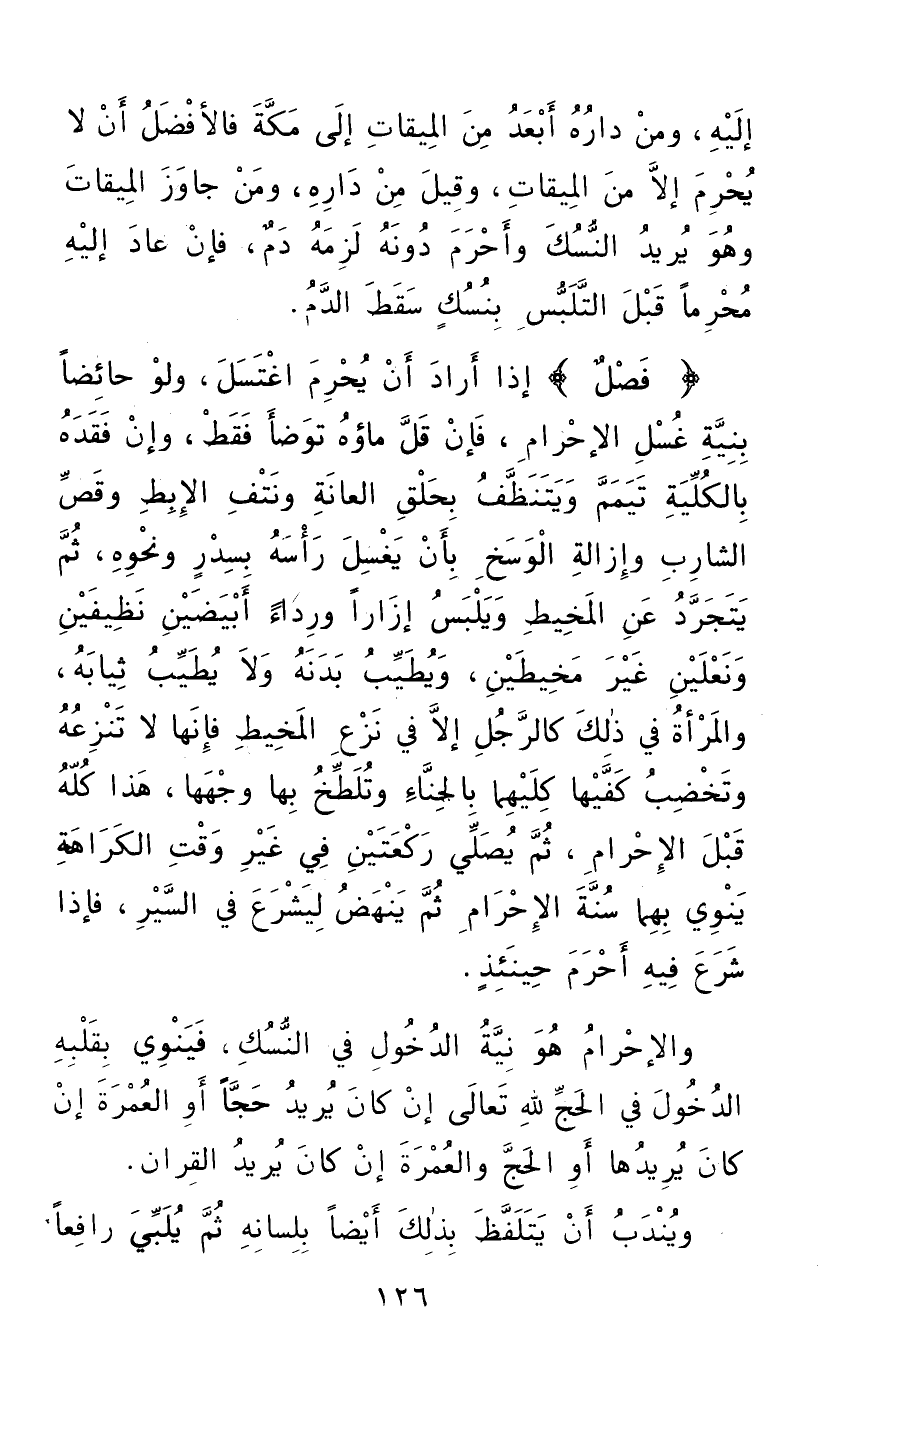 إلَيْهِ، ومنْ دارُهُ أَبْعَدُ مِنَ المِيقاتِ إلَى مَكَّةَ فالأفْضَلُ أَنْ لا
يُحْرِمَ إلاَّ منَ المِيقاتِ، وقِيلَ مِنْ دَارِهِ، ومَنْ جاوَزَ المِيقاتَ
وهُوَ يُرِيدُ النُّسُكَ وأَحْرَمَ دُونَهُ لَزِمَهُ دَمٌ، فإنْ عادَ إليْهِ
مُحْرِماً قَبْلَ التَّلَبُّسِ بِنُسُكٍ سَقَطَ الدَّمُ.
﴿ فَصْلٌ ﴾ إذا أَرادَ أَنْ يُحْرِمَ اغْتَسَلَ، ولوْ حائِضاً
بِنِيَّةِ غُسْلِ الإحْرامِ، فَإنْ قَلَّ ماؤهُ توَضأَ فَقَطْ، وإنْ فَقَدَهُ
بِالكُلِّيَةِ تَيَمَمَّ وَيَتَنَظَّفُ بِحَلْقِ العانَةِ ونَتْفِ الإِبطِ وقَصِّ
الشارِبِ وإزالةِ الْوَسَخِ بِأَنْ يَغْسِلَ رَأْسَهُ بِسِدْرٍ ونحْوِهِ، ثُمَّ
يَتَجَرَّدُ عَنِ المَخِيطِ وَيَلْبَسُ إزَاراً ورِدَاءً أَبْيَضَيْنِ نَظِيفَيْنِ
وَنَعْلَيْنِ غَيْرَ مَخِيطَيْنِ، وَيُطَيِّبُ بَدَنَهُ وَلاَ يُطَيِّبُ ثِيابَهُ،
والمَرْأةُ في ذٰلِكَ كالرَّجُلِ إلاَّ في نَزْعِ المَخِيطِ فإنَها لا تَنْزِعُهُ
وتَخْضِبُ كَفَّيْها كِلَيْهِما بِالحِنَّاءِ وتُلَطِّخُ بها وجْهَها، هَذا كُلُّهُ
قَبْلَ الإِحْرامِ، ثُمَّ يُصَلِّي رَكْعَتَيْنِ فِي غَيْرِ وَقْتِ الكَرَاهَةِ
يَنْوِي بِهِما سُنَّةَ الإِحْرَامِ ثُمَّ يَنْهَضُ لِيَشْرَعَ في السَّيْرِ، فإذا
شَرَعَ فِيهِ أَحْرَمَ حِينَئِذٍ.
والإحْرامُ هُوَ نِيَّةُ الدُخُولِ في النُّسُكِ، فَيَنْوِي بِقَلْبِهِ
الدُخُولَ في الحَجِّ للهِ تَعالَى إنْ كانَ يُرِيدُ حَجَّاً أَوِ العُمْرَةَ إنْ
كانَ يُرِيدُها أَوِ الحَجَّ والعُمْرَةَ إنْ كانَ يُرِيدُ القِران.
ويُنْدَبُ أَنْ يَتَلَفَّظَ بِذٰلِكَ أَيْضاً بِلِسانِهِ ثُمَّ يُلَبِّيَ رافِعاً
١٢٦